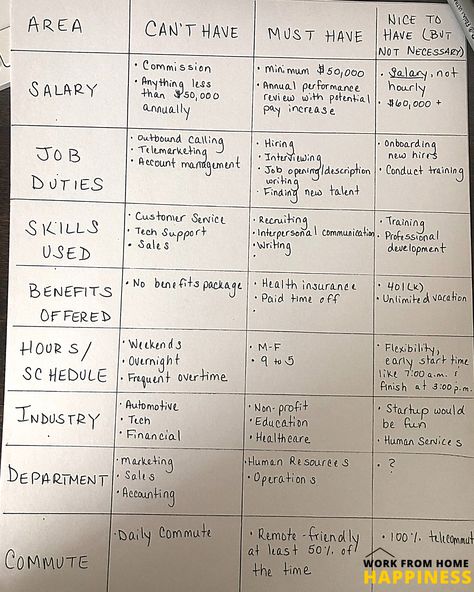 AREA
CAN'T HAVE
MUST HAVE
NICE TO
HAVE (BUT
NOT NECESSARY)
SALARY
· Commission
· Anything less
than $50,000
annually
· minimum $50,000
· Annual performance
review with potential
pay increase
· Salary, not
hourly
· $60,000 +
JOB
DUTIES
· Outbound calling
· Telemarketing
· Account management
· Hiring
· Interviewing
· Job opening/description
writing
· Finding new talent
· Onboarding
new hires
· Conduct training
SKILLS
USED
· Customer Service
· Tech Support
· Sales
· Recruiting
· Interpersonal communication
· Writing
·
· Training
· Professional
development
BENEFITS
OFFERED
· No benefits package
· Health insurance
· Paid time off
·
· 401(k)
· Unlimited vacation
HOURS/
SCHEDULE
· Weekends
· Overnight
· Frequent overtime
· M-F
· 9 to 5
· Flexibility,
early start time
like 7:00 a.m. &
finish at 3:00 p.m.
INDUSTRY
· Automotive
· Tech
· Financial
· Non-profit
· Education
· Healthcare
· Startup would
be fun
· Human Services
DEPARTMENT
· Marketing
· Sales
· Accounting
· Human Resources
· Operations
· ?
COMMUTE
· Daily Commute
· Remote-friendly
at least 50% of
the time
· 100% telecommut
WORK FROM HOME
HAPPINESS